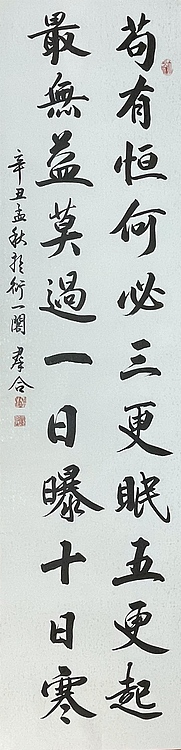 苟有恒何必三更眠五更起
最無益莫過一日曝十日寒
辛丑孟秋於衍一閣 群合